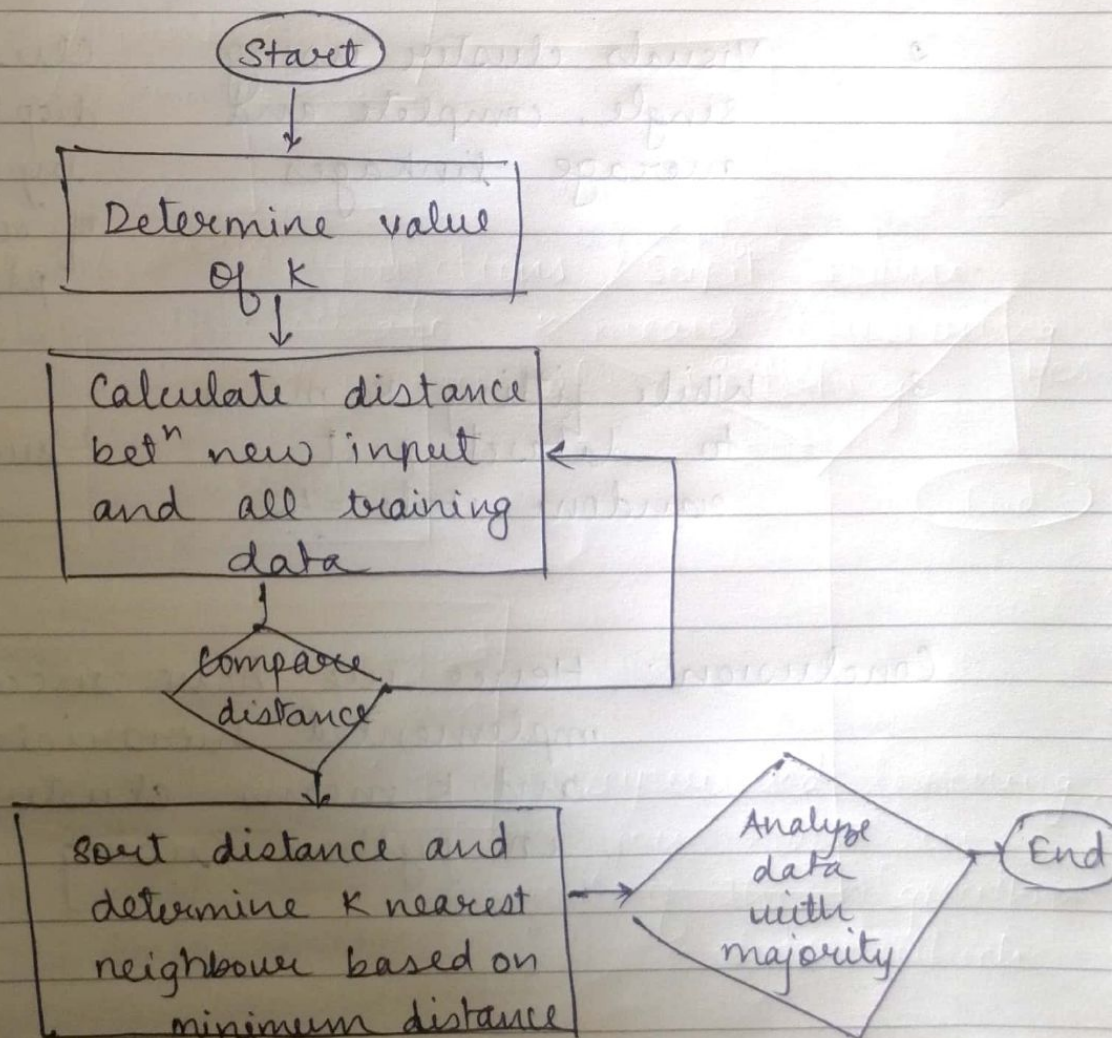 Start
Determine value
of K
Calculate distance
betⁿ new input
and all training
data
Compare
distance
sort distance and
determine K nearest
neighbour based on
minimum distance
Analyze
data
with
majority
End